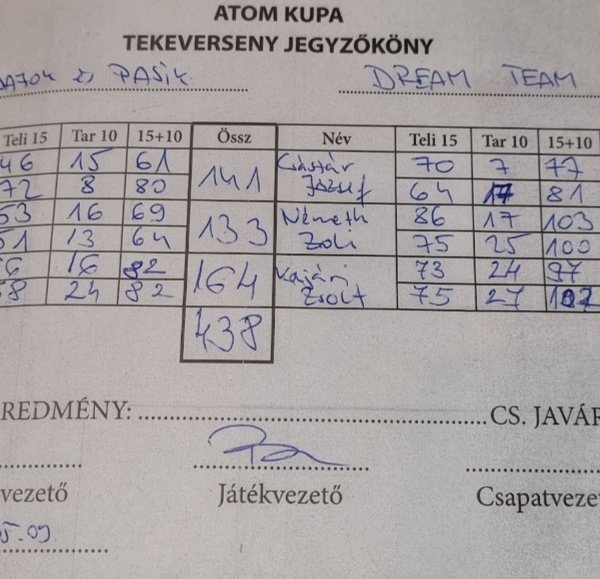 ATOM KUPA
TEKEVERSENY JEGYZŐKÖNY
PASIK DREAM TEAM
Teli 15 Tar 10 15+10 Össz Név Teli 15 Tar 10 15+10
46 15 61 141 Császár 70 7 77
72 8 80 József 64 17 81
53 16 69 133 Németh 86 17 103
51 13 64 Zoli 75 25 100
6 16 82 164 Kajári 73 24 97
58 24 82 Zsolt 75 27 102
438
REDMÉNY: CS. JAVÁR
vezető Játékvezető Csapatveze
5.09